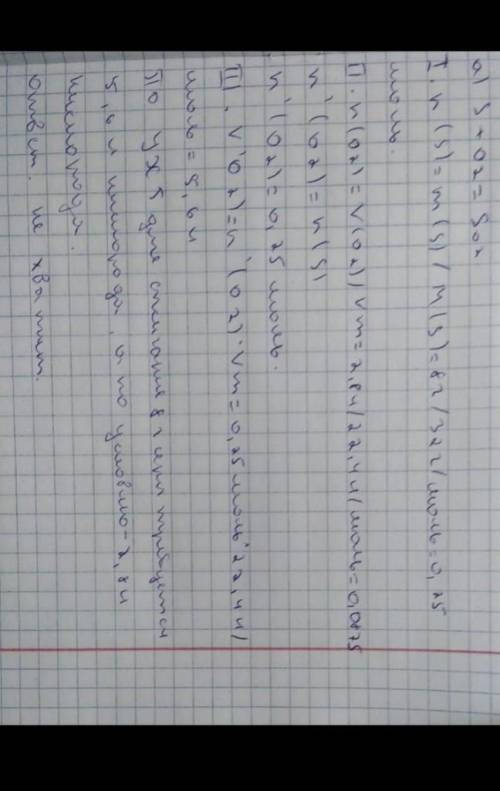 а) S + O2 = SO2
I. n (S) = m (S) / M (S) = 8г / 32г/моль = 0,25
моль.
II. n (O2) = V (O2) / Vm = 2,8л / 22,4л/моль = 0,0875
n' (O2) = n (S)
n' (O2) = 0,25 моль.
III. V (O2) = n' (O2) · Vm = 0,25 моль · 22,4л/
моль = 5,6л
По ух 5 для сжигания 8г серы требуется
5,6л кислорода, а по условию - 2,8л
кислорода.
ответ. не хватит.